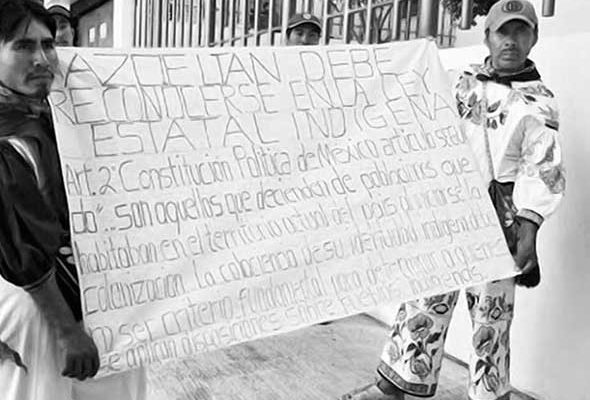 AZQELTAN DEBE
RECONOCERSE EN LA LEY
ESTATAL INDIGENA
Art. 2° Constitución Politica de Mexico articulo
do" "..son aquellos que deciendن de poblaciones que
habitaban en el territorio actual del pais al iniciarse la
Colonización La conciencia de su identidad indigena
ser criterio fundamental para determinar a quienes
se aplican disposiciones sobre